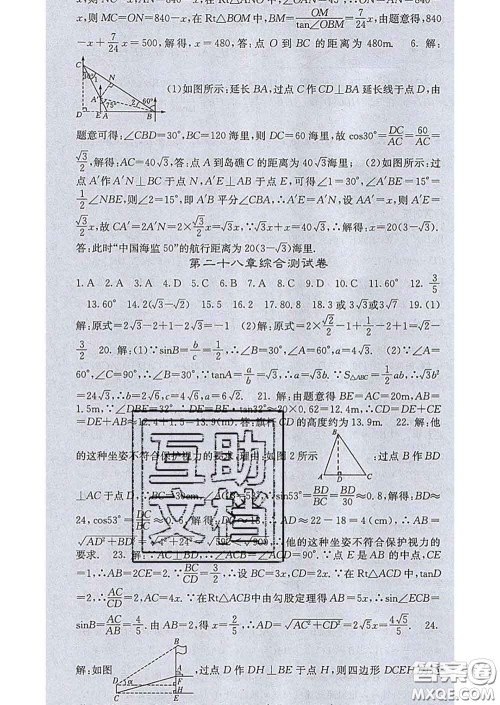 x,则MC=ON=840-x,在Rt△BOM中,BM=OM/tan∠OBM=7/24 x,由题意得,840
-x+7/24 x=500,解得,x=480,答:点O到BC的距离为480m. 6. 解:
(1)如图所示:延长BA,过点C作CD⊥BA延长线于点D,由
题意可得:∠CBD=30°,BC=120海里,则DC=60海里,故cos30°=DC/AC=60/AC=
√3/2,解得:AC=40√3海里,答:点A到岛礁C的距离为40√3海里; (2)如图所示:过
点A′作A′N⊥BC于点N,A′E⊥AB于点E,可得∠1=30°,∠A′BE=15°=
1/2∠NBE,则∠2=15°,即A′B平分∠CBA,∴A′E=A′N,设AA′=x,则A′E=
√3/2 x,故CA′=2A′N=2×√3/2 x=√3x,∵√3x+x=40√3,∴解得:x=20(3-√3).
答:此时“中国海监50”的航行距离为20(3-√3)海里.
第二十八章综合测试卷
1. A 2. A 3. A 4. D 5. A 6. A 7. B 8. D 9. D 10. C 11. 60° 12. 3/5
13. 60° 14. 2(√3-√2) 15. √2 16. 2 17. 80.8 18. 3或√3或3√7 19. (1)
解:原式=2√3-2+1-2=2√3-3 (2)解:原式=2×√2/2-1+1/2-2+√2=2√2-1/2-2=2√2-
3/2 20. 解:(1)∵sinB=b/c=1/2,∴∠B=30°,∴∠A=60°,a=4√3. (2)∵∠A=
60°,∠C=90°,∴∠B=30°,∵tanA=a/b=√3,∴a=√3b,∵S△ABC=1/2 ab,∴√3b²
=24√3,∴b=2√6,c=4√6,a=6√2. 21. 解:由题意得BE=AC=20m,AB=
1.5m,∵∠DBE=32°∴DE=BE·tan32°≈20×0.62=12.4m,∴CD=DE+CE
=DE+AB≈12.4+1.5=13.9(m).答:旗杆CD的高度约为13.9m. 22. 解:他
的这种坐姿不符合保护视力的要求,理由:如图2所示 :过点B作BD
⊥AC于点D,∵BC=30cm,∠ACB=53°,∴sin53°=BD/BC=BD/30≈0.8,解得:BD=
24,cos53°=DC/BC≈0.6,解得:DC=18,∴AD=22-18=4(cm),∴AB=
√AD²+BD²=√4²+24²=√592<√900,∴他的这种坐姿不符合保护视力的
要求. 23. 解:∵AC⊥BD,∴∠ACB=∠ACD=90°.∵点E是AB的中点,CE=
1,∴AB=2CE=2.∵BC/CD=3/2,∴设BC=3x,CD=2x.∵在Rt△ACD中,tanD
=2,∴AC/CD=2,∴AC=4x.∵在Rt△ACB中由勾股定理得AB=5x,∴sinB=
sinB=AC/AB=4/5.由AB=2,得x=2/5,∴AD=√AC²+CD²=2√5x=4√5/5. 24.
解:如图 ,过点D作DH⊥BE于点H,则四边形DCEH
互助文档
答案圈
MXQE.COM